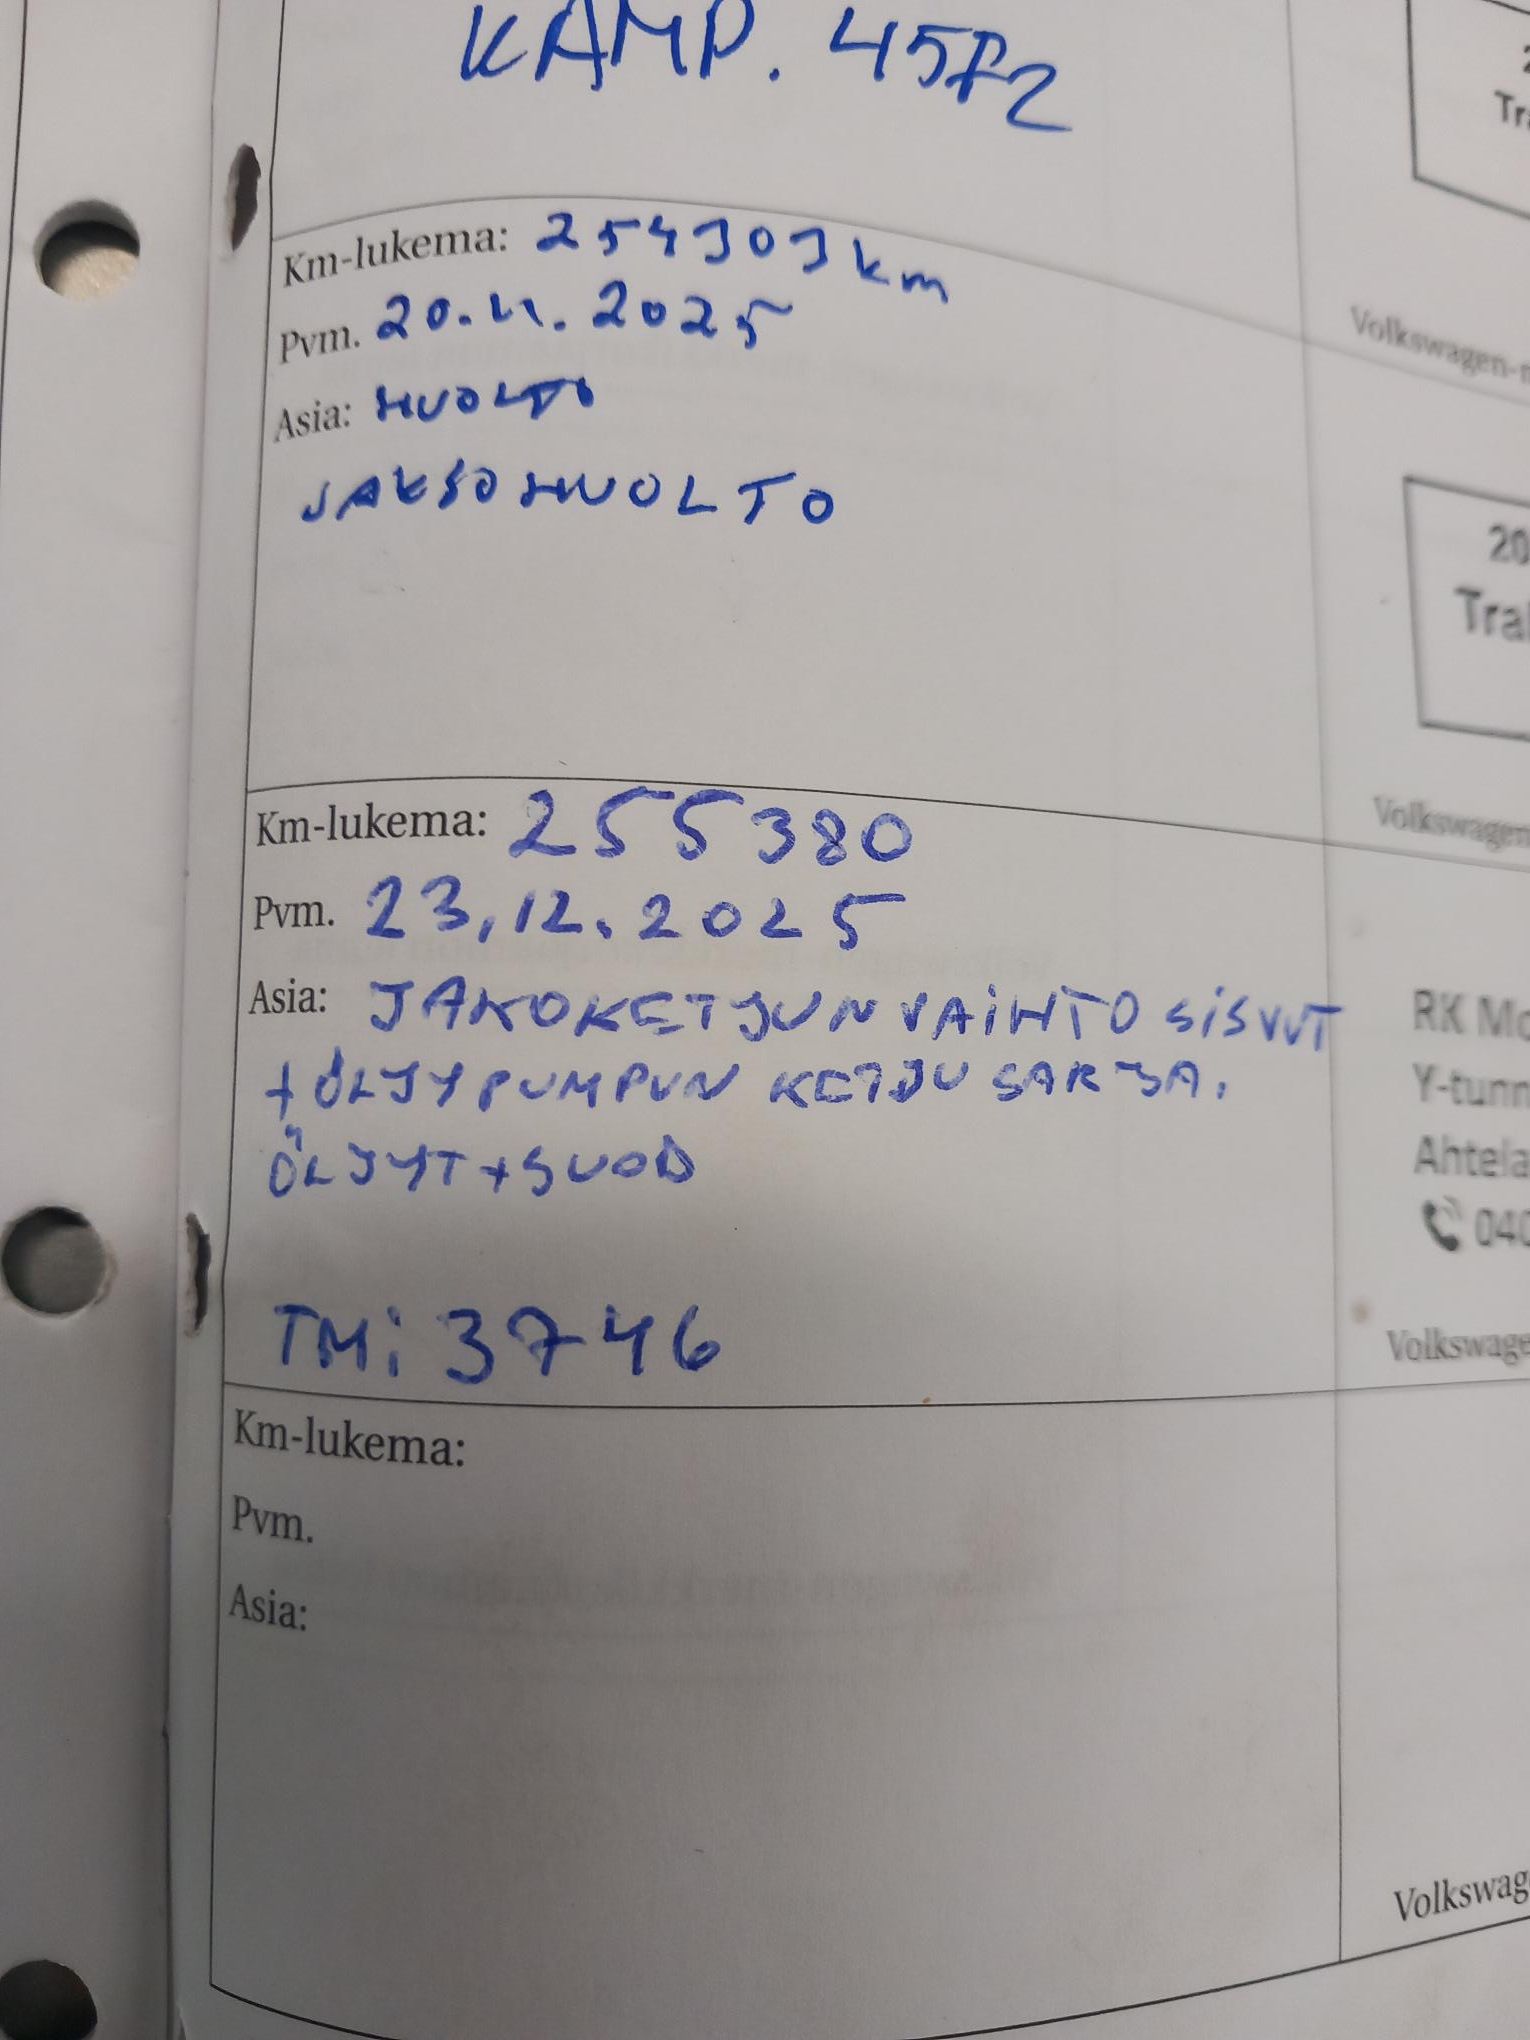 KAMP. 45F2
Km-lukema: 254303 km
Pvm. 20.11.2025
Asia: HUOLTO
JAKSOHUOLTO
Km-lukema: 255380
Pvm. 23.12.2025
Asia: JAKOKETJUN VAIHTO SISVUT
+ ÖLJYPUMPUN KETJU SARJA.
ÖLJYT + SUOD
TMi 3746
Km-lukema:
Pvm.
Asia:
Tra
Volkswagen-
20
Tra
Volkswagen
RK Mo
Y-tunn
Ahtela
040
Volkswage
Volkswag